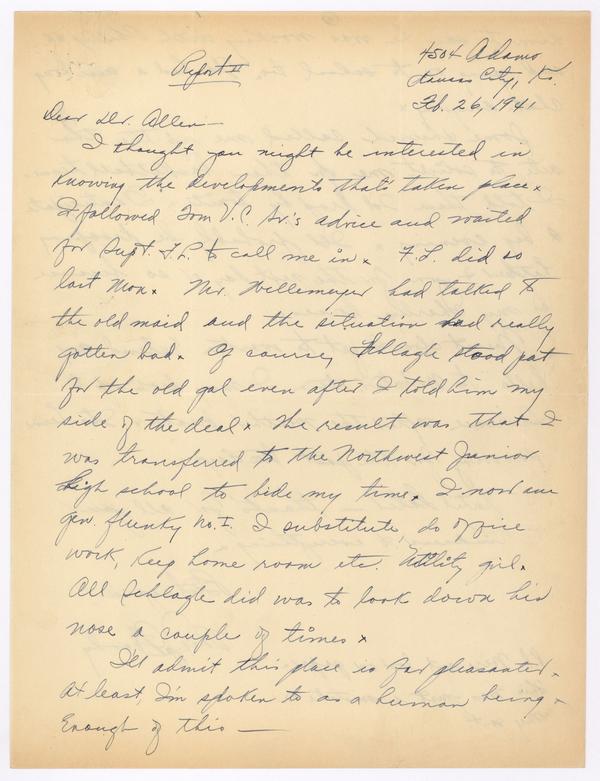 4504 Adams
Report II
Kansas City, Ks.
Feb. 26, 1941
Dear Dr. Allen—
I thought you might be interested in
knowing the developments that's taken place.
I followed Tom V.C. Sr.'s advice and waited
for Supt. F.L. to call me in. F.L. did so
last Mon. Mr. Willemeyer had talked to
the old maid and the situation had really
gotten bad. Of course, Schlagle stood pat
for the old gal even after I told him my
side of the deal. The result was that I
was transferred to the Northwest Junior
High school to bide my time. I now am
gen. flunky No. I. I substitute, do office
work, keep home room etc. Utility girl.
All Schlagle did was to look down his
nose a couple of times.
I'll admit this place is far pleasanter.
At least, I'm spoken to as a human being.
Enough of this —